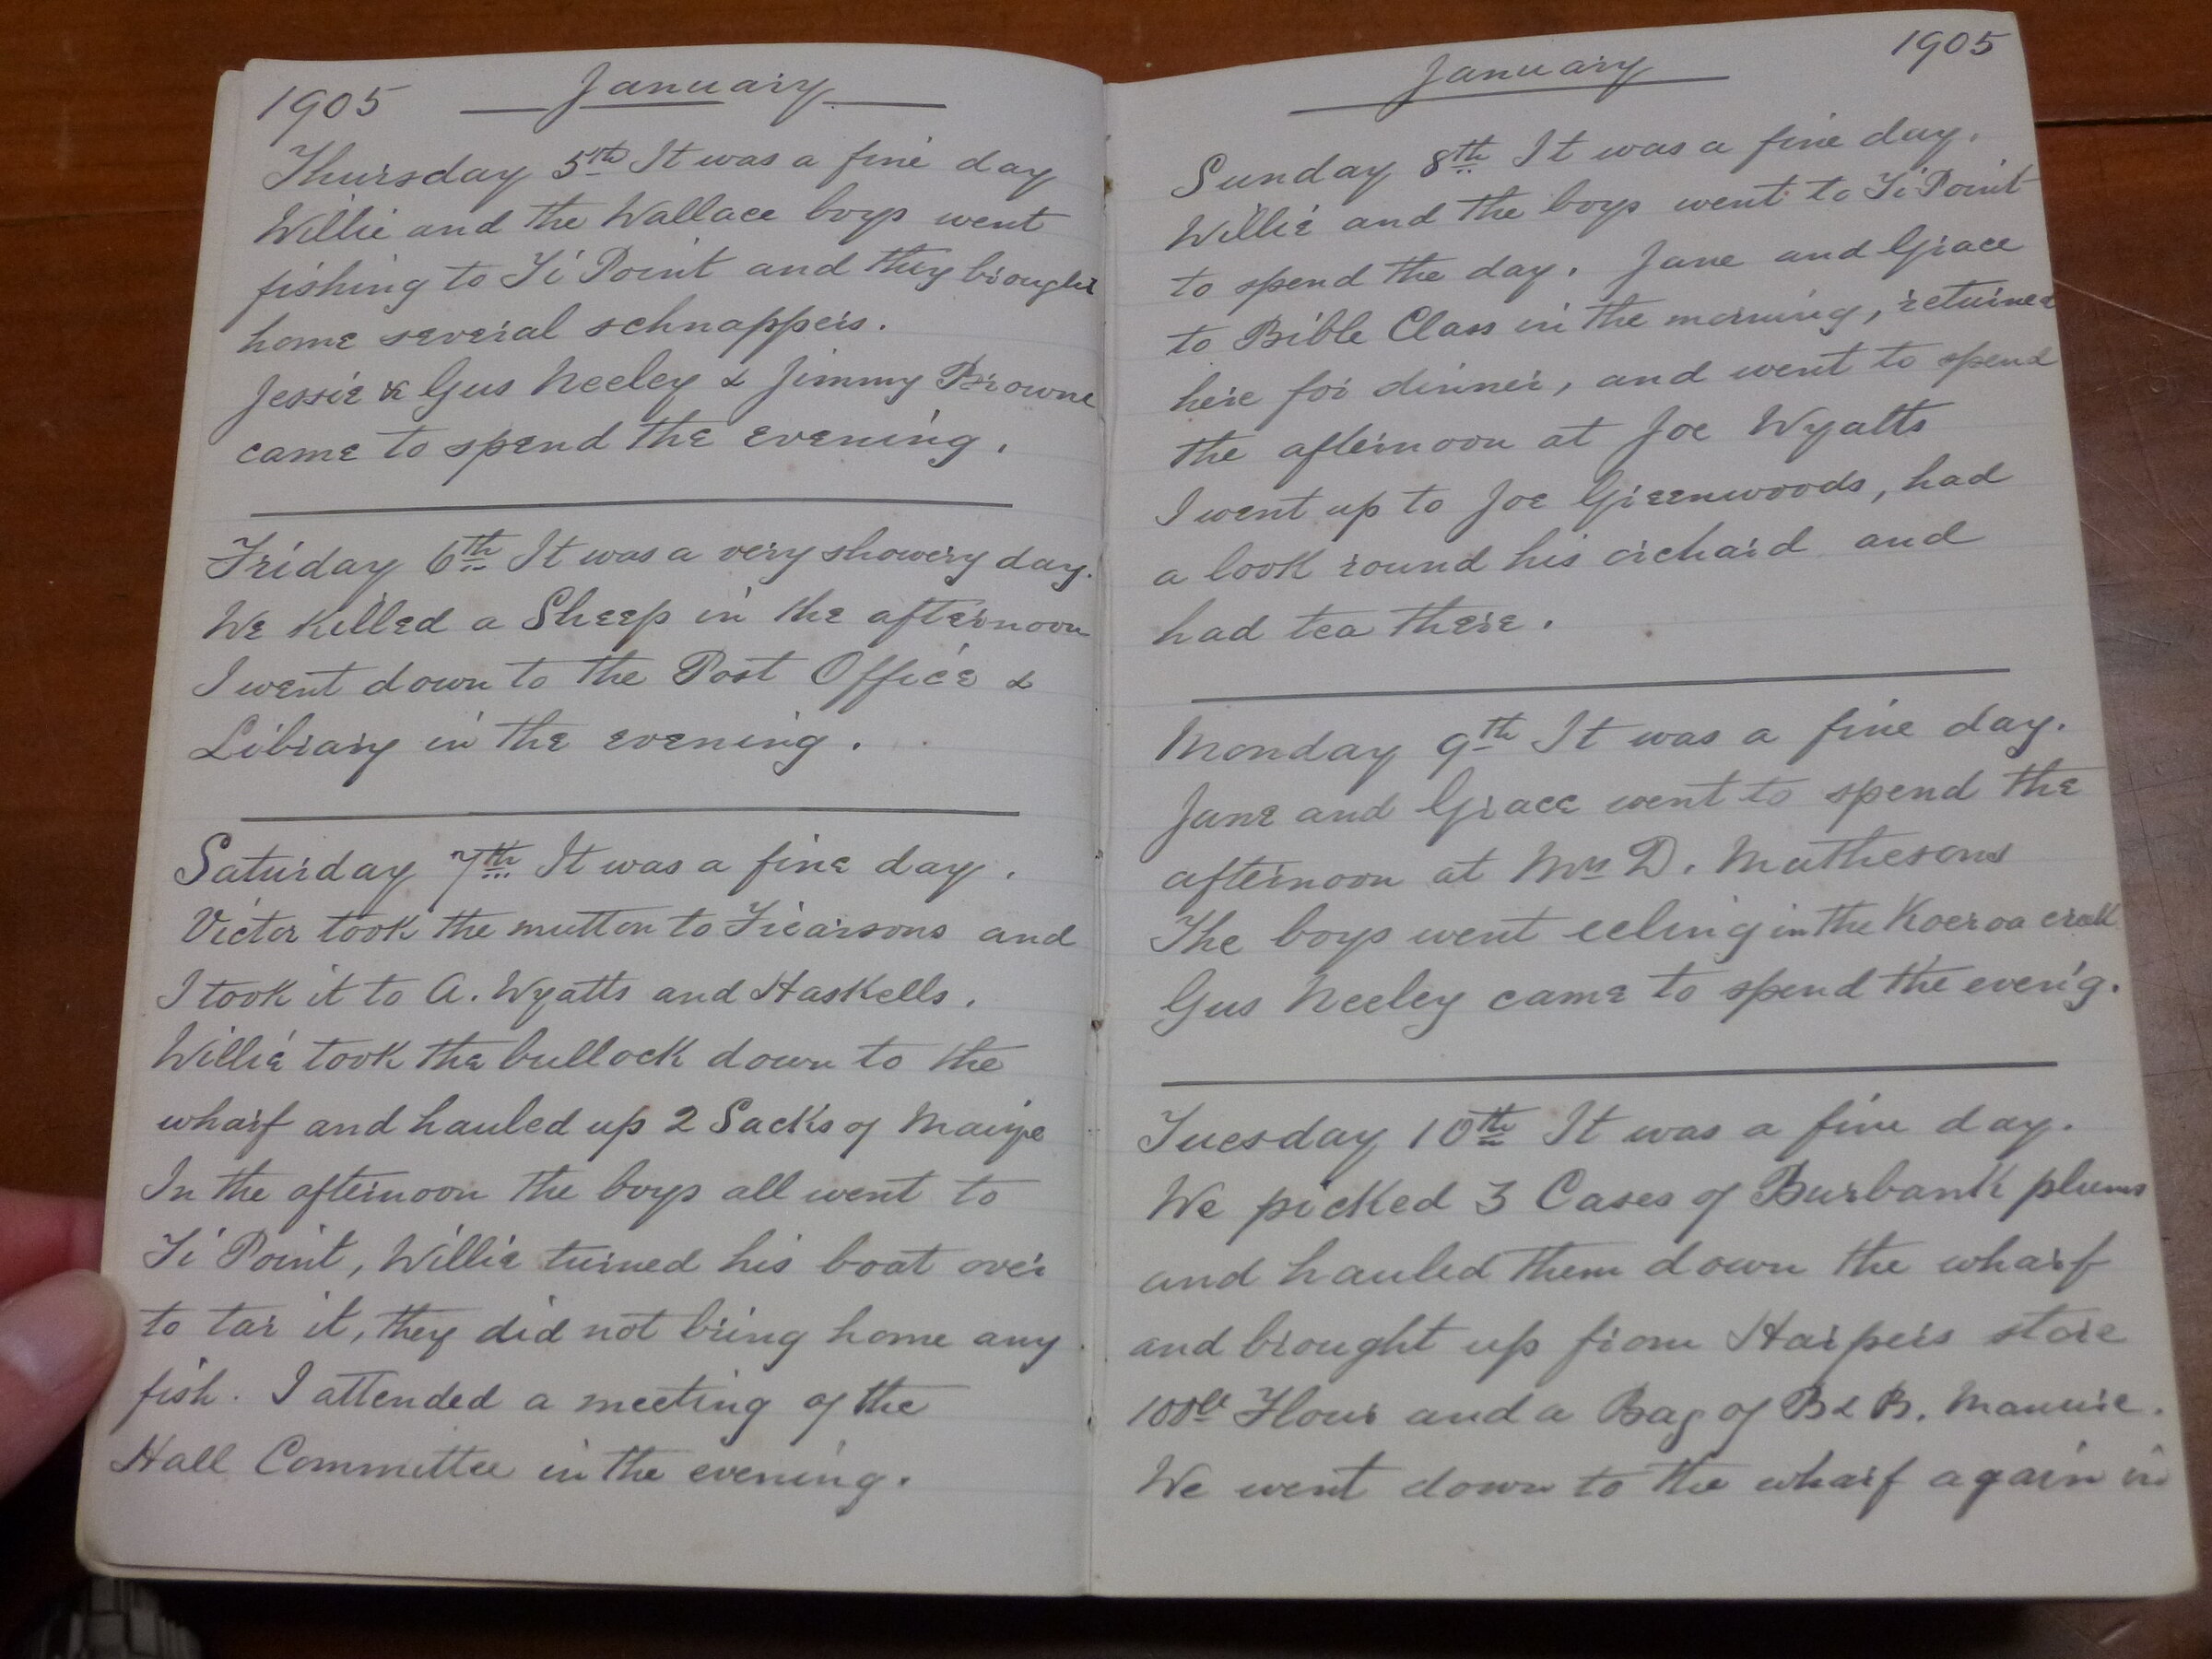 1905 January
Thursday 5th It was a fine day
Willie and the Wallace boys went
fishing to Ti Point and they brought
home several schnappers.
Jessie & Gus Neeley & Jimmy Browne
came to spend the evening.
Friday 6th It was a very showery day.
We killed a Sheep in the afternoon
I went down to the Post Office &
Library in the evening.
Saturday 7th It was a fine day.
Victor took the mutton to and
I took it to A. Wyatts and Haskells.
Willie took the bullock down to the
wharf and hauled up 2 Sacks of Maize
In the afternoon the boys all went to
Ti Point, Willie turned his boat over
to tar it, they did not bring home any
fish. I attended a meeting of the
Hall Committee in the evening.
January 1905
Sunday 8th It was a fine day.
Willie and the boys went to Ti Point
to spend the day. Jane and Grace
to Bible Class in the morning, returned
here for dinner, and went to spend
the afternoon at Joe Wyatts
I went up to Joe Greenwoods, had
a look round his orchard and
had tea there.
Monday 9th It was a fine day.
Jane and Grace went to spend the
afternoon at Mrs D. Mathesons
The boys went eeling in the creek
Gus Neeley came to spend the evenig.
Tuesday 10th It was a fine day.
We picked 3 Cases of Burbank plums
and hauled them down the wharf
and brought up from Harpers store
100lb Flour and a Bag of B & B. Manure.
We went down to the wharf again in